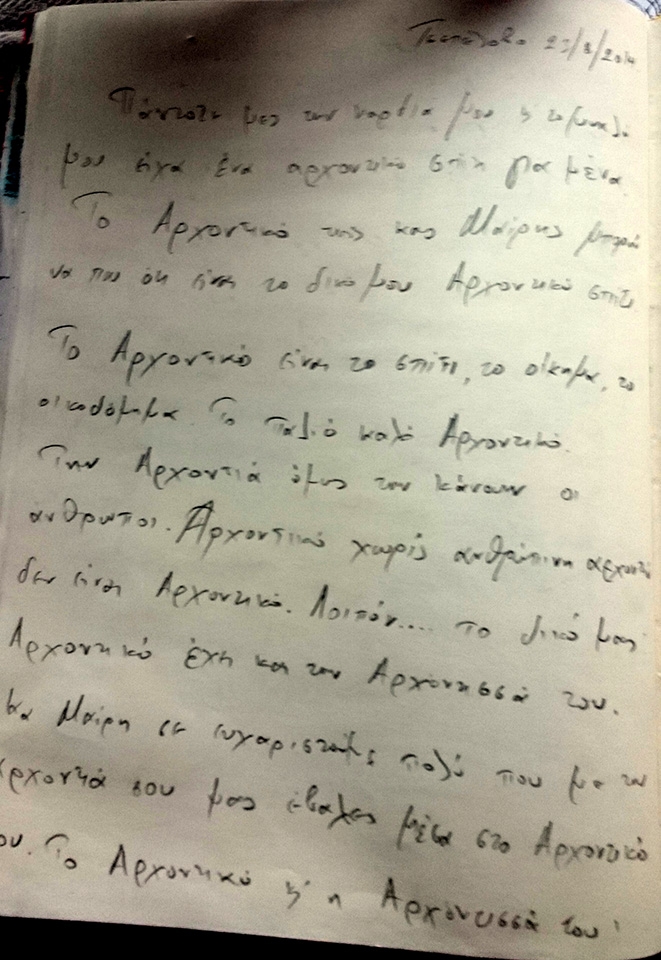 23/8/2014
Πάντοτε μες την καρδιά μου κ' το μυαλό
μου είχα ένα αρχοντικό σπίτι για μένα.
Το Αρχοντικό της κας Μαίρης μπορώ
να πω ότι είναι το δικό μου Αρχοντικό σπίτι.
Το Αρχοντικό είναι το σπίτι, το οίκημα, το
οικοδόμημα. Το παλιό καλό Αρχοντικό.
Την Αρχοντιά όμως την κάνουν οι
άνθρωποι. Αρχοντικό χωρίς ανθρώπινη αρχοντιά
δεν είναι Αρχοντικό. Λοιπόν.... το δικό μας
Αρχοντικό έχει και την Αρχόντισσά του.
κα Μαίρη σε ευχαριστούμε πολύ που με την
Αρχοντιά σου μας έβαλες μέσα στο Αρχοντικό
σου. Το Αρχοντικό κ' η Αρχόντισσά του!